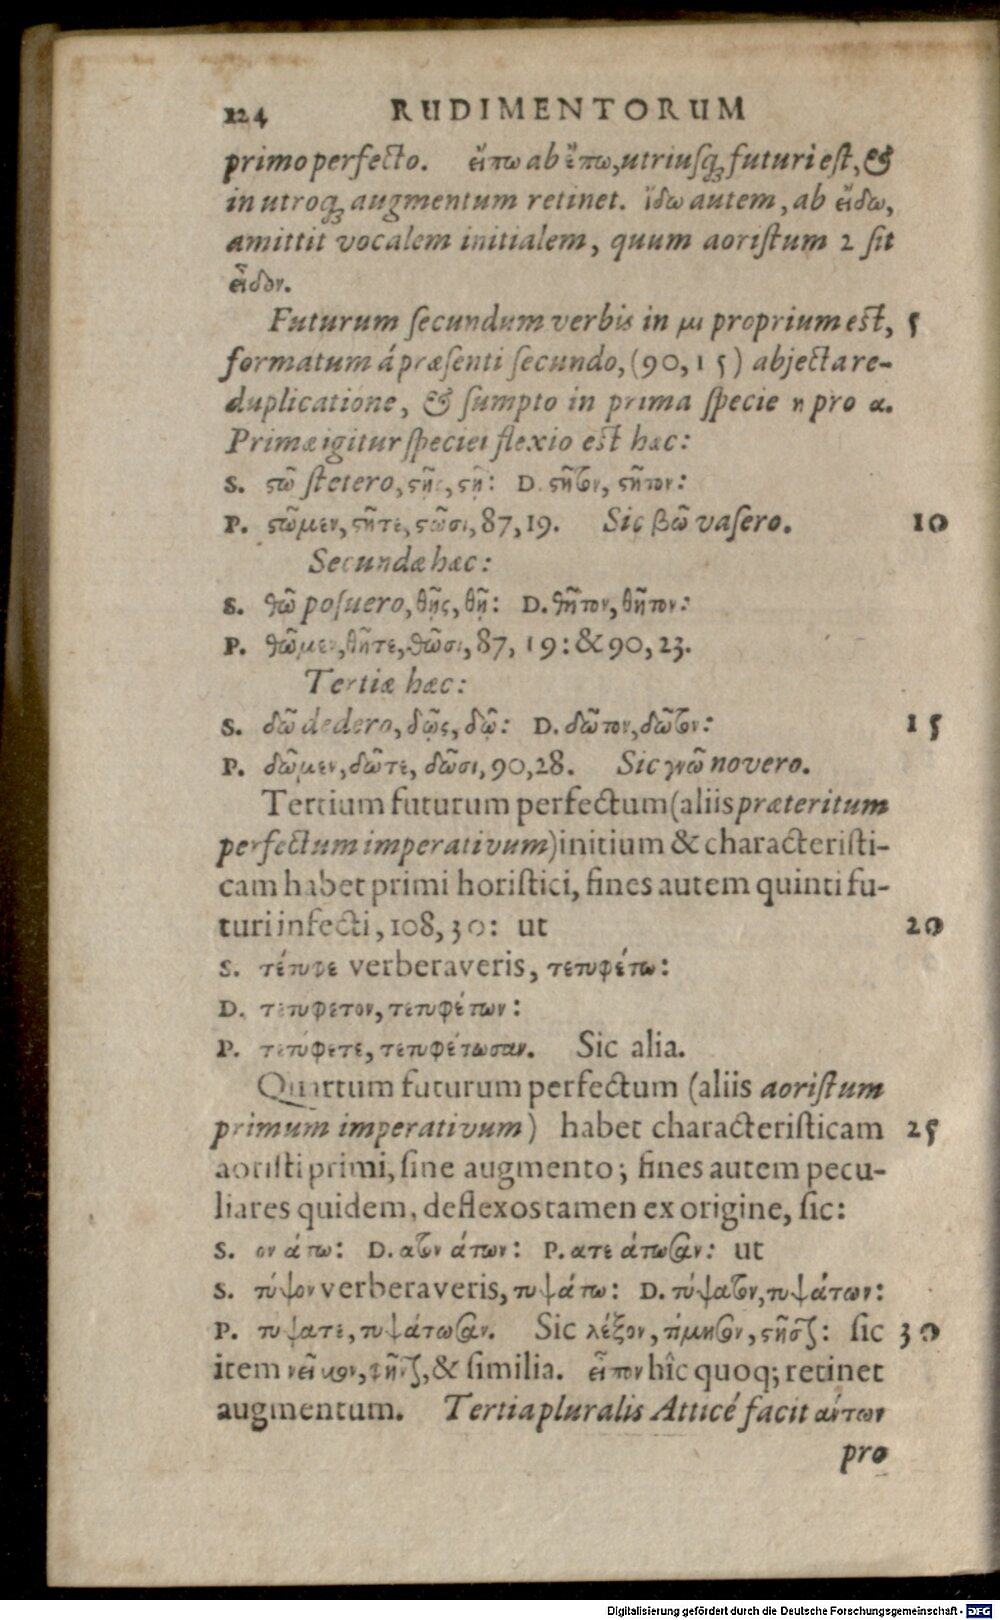 124 RUDIMENTORUM
primo perfecto. εἴπω ab ἔπω, utriusq; futuri est, &
in utroq; augmentum retinet. ἴδω autem, ab εἴδω,
amittit vocalem initialem, quum aoristum 2 sit
εἶδον.
Futurum secundum verbis in μι proprium est, 5
formatum á præsenti secundo, (90, 15) abjecta re-
duplicatione, & sumpto in prima specie η pro α.
Primæ igitur speciei flexio est hæc:
S. ϛῶ stetero, ϛῇς, ϛῇ: D. ϛῆτον, ϛῆτον:
P. ϛῶμεν, ϛῆτε, ϛῶσι, 87, 19. Sic βῶ vasero. 10
Secundæ hæc:
S. θῶ posuero, θῇς, θῇ: D. θῆτον, θῆτον:
P. θῶμεν, θῆτε, θῶσι, 87, 19: & 90, 23.
Tertiæ hæc:
S. δῶ dedero, δῷς, δῷ: D. δῶτον, δῶτον: 15
P. δῶμεν, δῶτε, δῶσι, 90, 28. Sic γνῶ novero.
Tertium futurum perfectum (aliis præteritum
perfectum imperativum) initium & characteristi-
cam habet primi horistici, fines autem quinti fu-
turi infecti, 108, 30: ut 20
S. τέτυφε verberaveris, τετυφέτω:
D. τετύφετον, τετυφέτων:
P. τετύφετε, τετυφέτωσαν. Sic alia.
Quartum futurum perfectum (aliis aoristum
primum imperativum) habet characteristicam 25
aoristi primi, sine augmento; fines autem pecu-
liares quidem, deflexos tamen ex origine, sic:
S. ον άτω: D. ατον άτων: P. ατε άτωσαν: ut
S. τύψον verberaveris, τυψάτω: D. τύψατον, τυψάτων:
P. τύψατε, τυψάτωσαν. Sic λέξον, τίμησον, ϛῆσον: sic 30
item νεῖμον, φῆνον, & similia. εἶπον hîc quoq; retinet
augmentum. Tertia pluralis Atticé facit αντων
pro
Digitalisierung gefördert durch die Deutsche Forschungsgemeinschaft - DFG